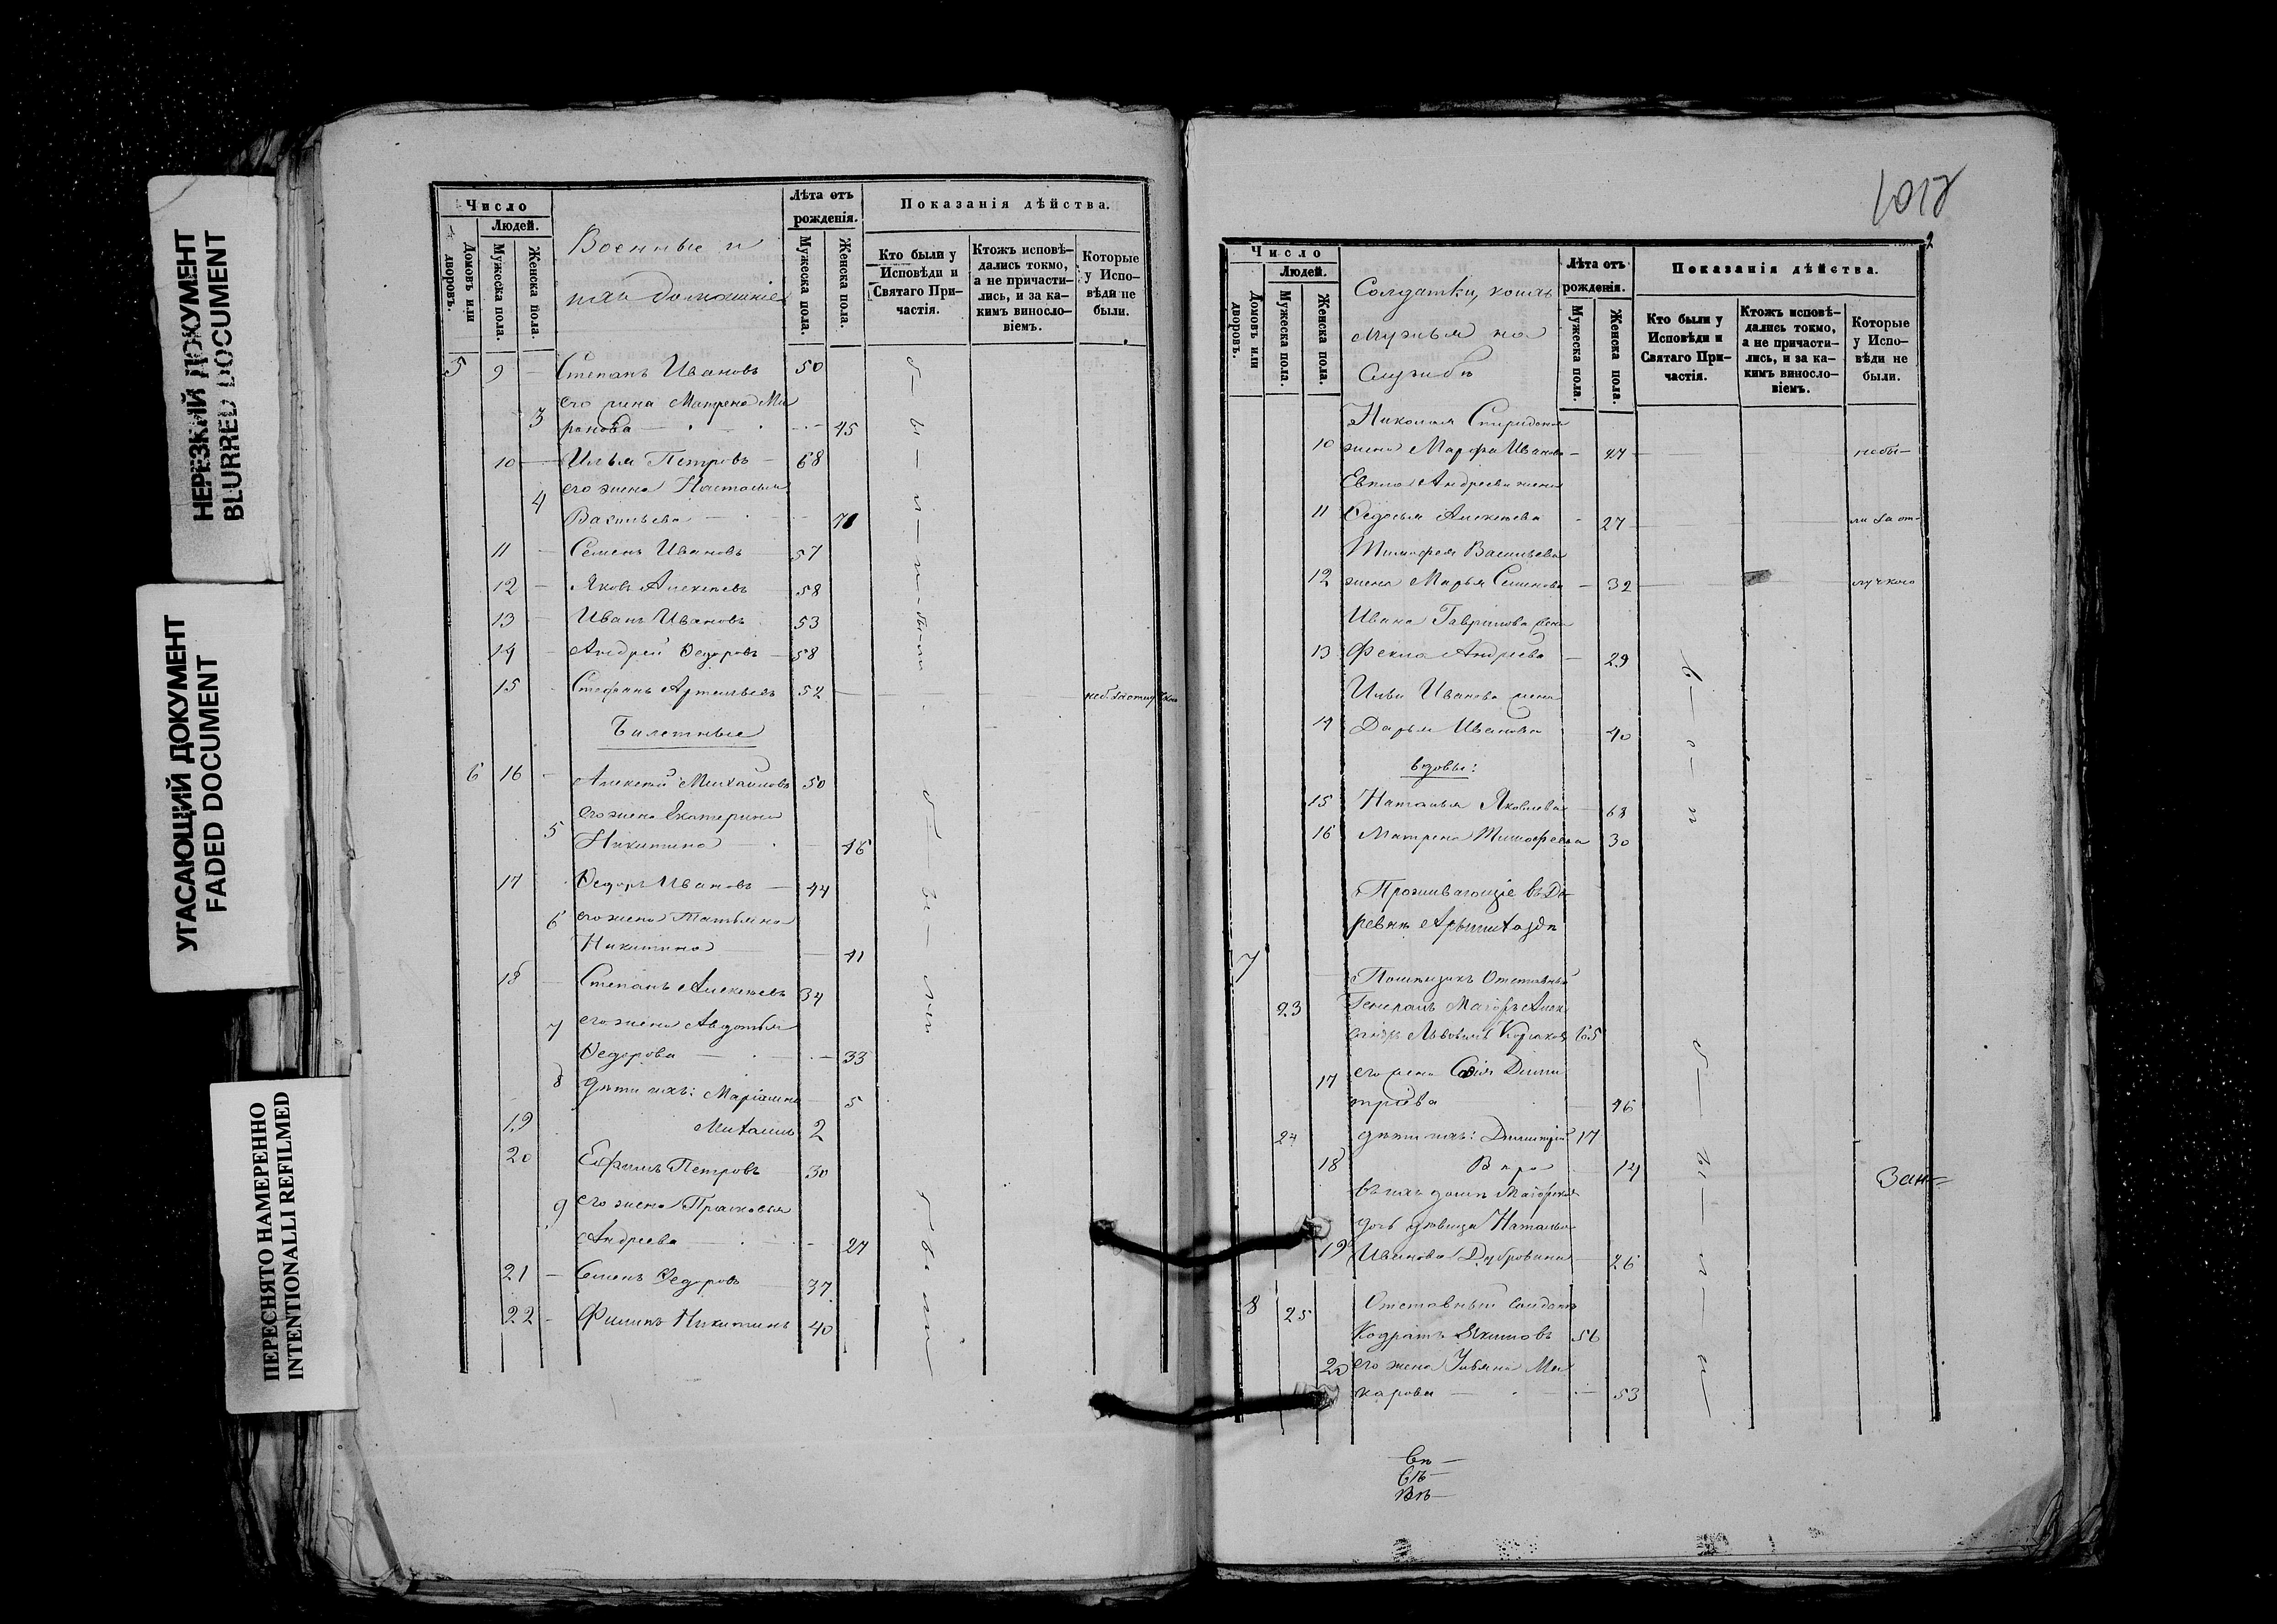 НЕРЕЗКИЙ ДОКУМЕНТ
BLURRED DOCUMENT
УГАСАЮЩИЙ ДОКУМЕНТ
FADED DOCUMENT
ПЕРЕСНЯТО НАМЕРЕННО
INTENTIONALLI REFILMED
Число
Людей.
Домовъ или дворовъ.
Мужеска пола.
Женска пола.
Военные и
ихъ домашніе
Лѣта отъ рожденія.
Мужеска пола.
Женска пола.
Показанія дѣйства.
Кто были у Исповѣди и Святаго Причастія.
Ктожъ исповѣдались токмо, а не причастились, и за какимъ винословіемъ.
Которые у Исповѣди не были.
5 9 Степанъ Ивановъ 50
3 его жена Матрена Ми
ронова 45
10 Илья Петровъ 68
4 его жена Настасья
Васильева
11 Семенъ Ивановъ 57
12 Яковъ Алексѣевъ 58
13 Иванъ Ивановъ 53
14 Андрей Ѳедоровъ 58
15 Стефанъ Артемьевъ 52
Билетные
6 16 Алексѣй Михайловъ 50
5 его жена Екатерина
Никитина 46
17 Ѳедоръ Ивановъ 44
6 его жена Татьяна
Никитина 41
18 Степанъ Алексѣевъ 34
7 его жена Авдотья
Ѳедорова 33
8 дѣти ихъ: Маріамна 5
19 Михаилъ 2
20 Ефимъ Петровъ 30
9 его жена Прасковья
Андреева 27
21 Семенъ Ѳедоровъ 37
22 Филипъ Никитинъ 40
Число
Людей.
Домовъ или дворовъ.
Мужеска пола.
Женска пола.
Солдатки, коихъ
мужья на
службѣ
Лѣта отъ рожденія.
Мужеска пола.
Женска пола.
Показанія дѣйства.
Кто были у Исповѣди и Святаго Причастія.
Ктожъ исповѣдались токмо, а не причастились, и за какимъ винословіемъ.
Которые у Исповѣди не были.
Николая Спиридонова
10 жена Марфа Иванова 27 небы-
Евпла Андреева жена
11 Ѳедосья Алексѣева 27 ли за от-
Тимофея Васильева
12 жена Марья Семенова 32 лучкою
Ивана Гаврилова жена
13 Фекла Андреева 29
Ильи Иванова жена
14 Дарья Иванова 40
вдовы:
15 Наталья Яковлева 68
16 Матрена Тимофеева 30
Проживающіе въ Де-
ревнѣ
7 Помѣщикъ Отставный
23 Генералъ Маіоръ Алек
сандръ Львовичъ 65
17 его жена Софія Дими
тріева 46
24 дѣти ихъ: Димитрій 17
18 Вѣра 14
въ ихъ домѣ Маіорская
дочь дѣвица Наталья
19 Иванова Дубровина 26
8 25 Отставный солдатъ
Кодратъ Якимовъ 56
20 его жена Ульяна Ма
карова 53